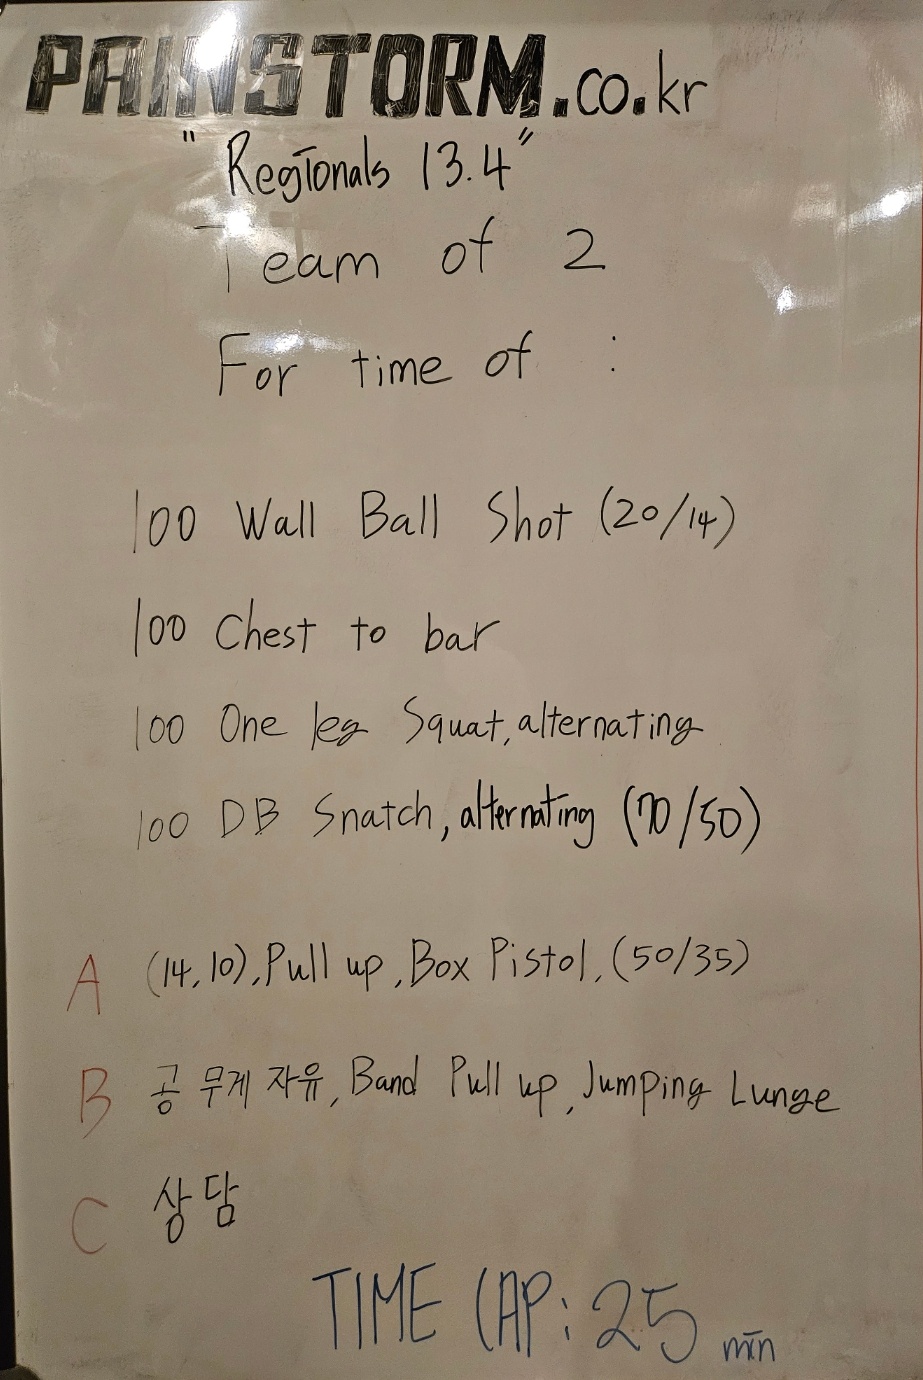 PAINSTORM.co.kr
"Regionals 13.4"
Team of 2
For time of :
100 Wall Ball Shot (20/14)
100 Chest to bar
100 One leg Squat, alternating
100 DB Snatch, alternating (70/50)
A (14, 10), Pull up, Box Pistol, (50/35)
B 공 무게 자유, Band Pull up, Jumping Lunge
C 상담
TIME CAP: 25 min